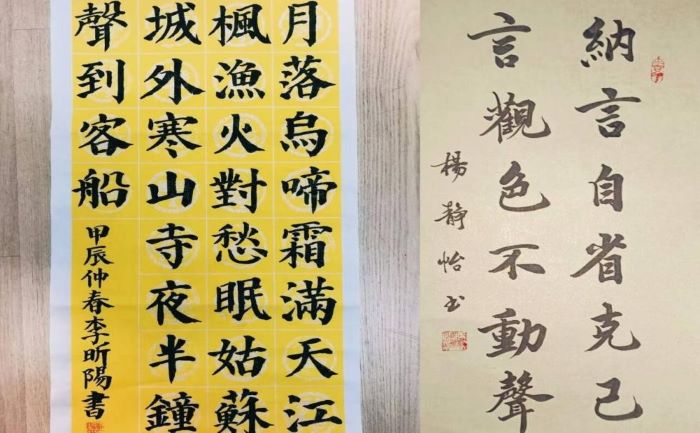 月落烏啼霜滿天江
楓漁火對愁眠姑蘇
城外寒山寺夜半鐘
聲到客船
甲辰仲春李昕陽書
納言自省克己
言觀色不動聲
楊靜怡书